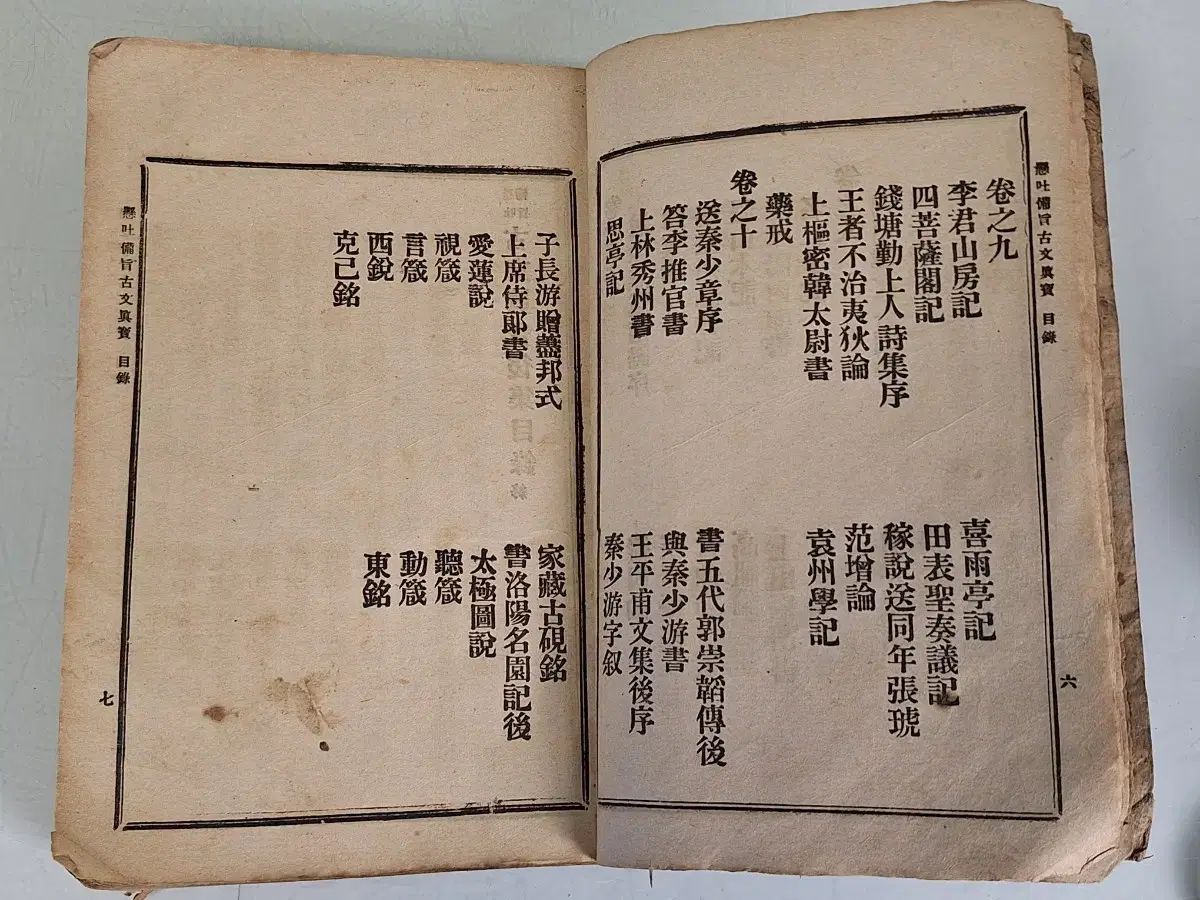 懸吐備旨古文眞寶 目錄
六
卷之九
李君山房記 喜雨亭記
四菩薩閣記 田表聖奏議記
錢塘勤上人詩集序 稼說送同年張琥
王者不治夷狄論 范增論
上樞密韓太尉書 袁州學記
藥戒
卷之十
送秦少章序 書五代郭崇韜傳後
答李推官書 與秦少游書
上林秀州書 王平甫文集後序
思亭記 秦少游字叙
子長游贈藎邦式 家藏古硯銘
上席侍郞書 書洛陽名園記後
愛蓮說 太極圖說
視箴 聽箴
言箴 動箴
西銳 東銘
克己銘
懸吐備旨古文眞寶 目錄
七